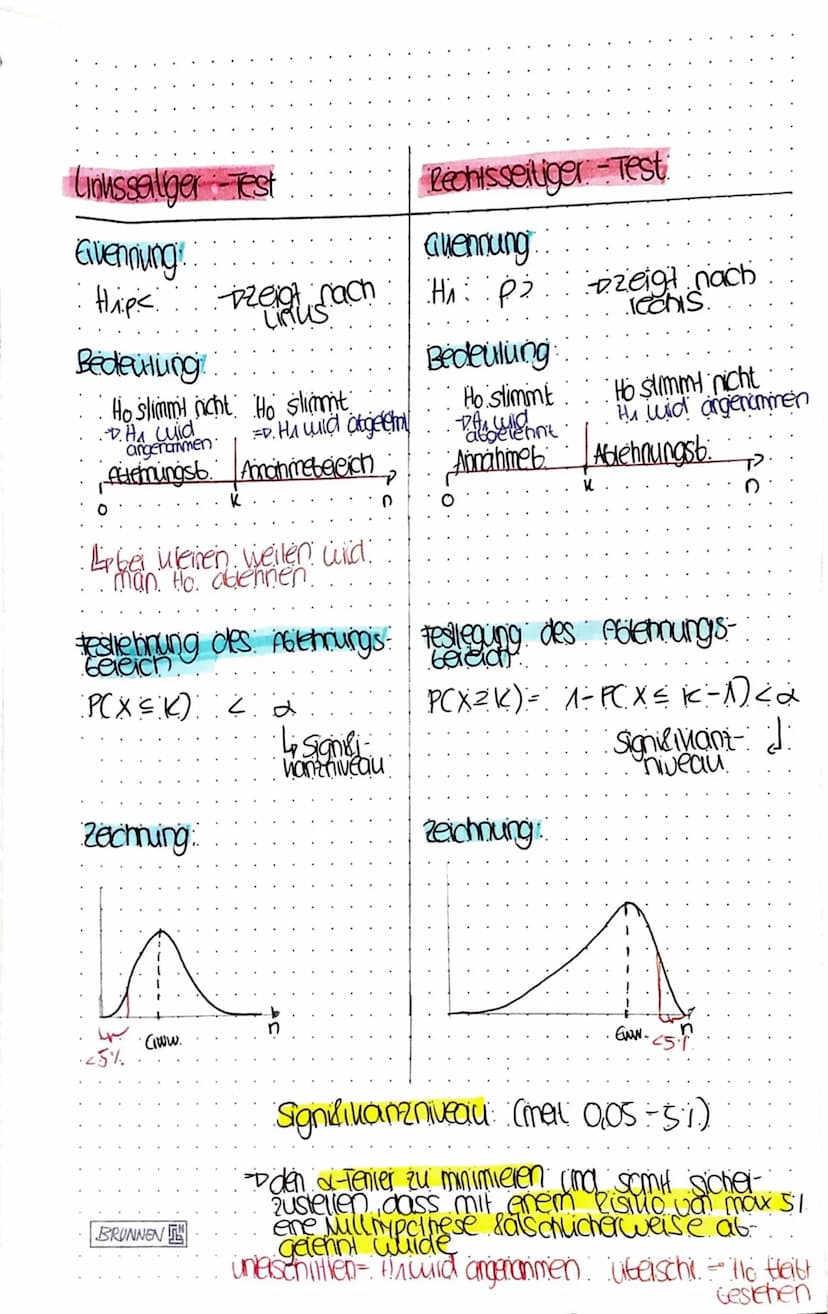 Linksseitiger-Test
Erkennung:
H1: p<
→ zeigt nach
links
Bedeutung:
H0 stimmt nicht
→ H1 wird
angenommen
H0 stimmt
=> H1 wird abgelehnt
Ablehnungsb.
Annahmebereich
0
K
n
↳ bei kleinen werten wird
man H0 ablehnen
festlehnung des Ablehnungs-
bereich
P(X ≤ K) < α
↳ Signifi-
kanzniveau
Zeichnung:
n
<5%
Erww.
Rechtsseitiger-Test
Erkennung
H1: p>
→ zeigt nach
rechts
Bedeutung
H0 stimmt
→ H1 wird
abgelehnt
H0 stimmt nicht
H1 wird angenommen
Annahmeb.
Ablehnungsb.
0
K
n
festlegung des Ablehnungs-
bereich
P(X ≥ K) = 1 - P(X ≤ K - 1) < α
Signifikanz-
niveau
Zeichnung:
n
Erww.
<5%
Signifikanzniveau (meist 0,05 - 5%)
→ den α-Fehler zu minimieren und somit sicher-
zustellen, dass mit einem Risiko von max 5%
eine Nullhypothese fälschlicherweise ab-
gelehnt wurde
BRUNNEN
unterschritten = H1 wird angenommen überschr. = H0 bleibt
bestehen